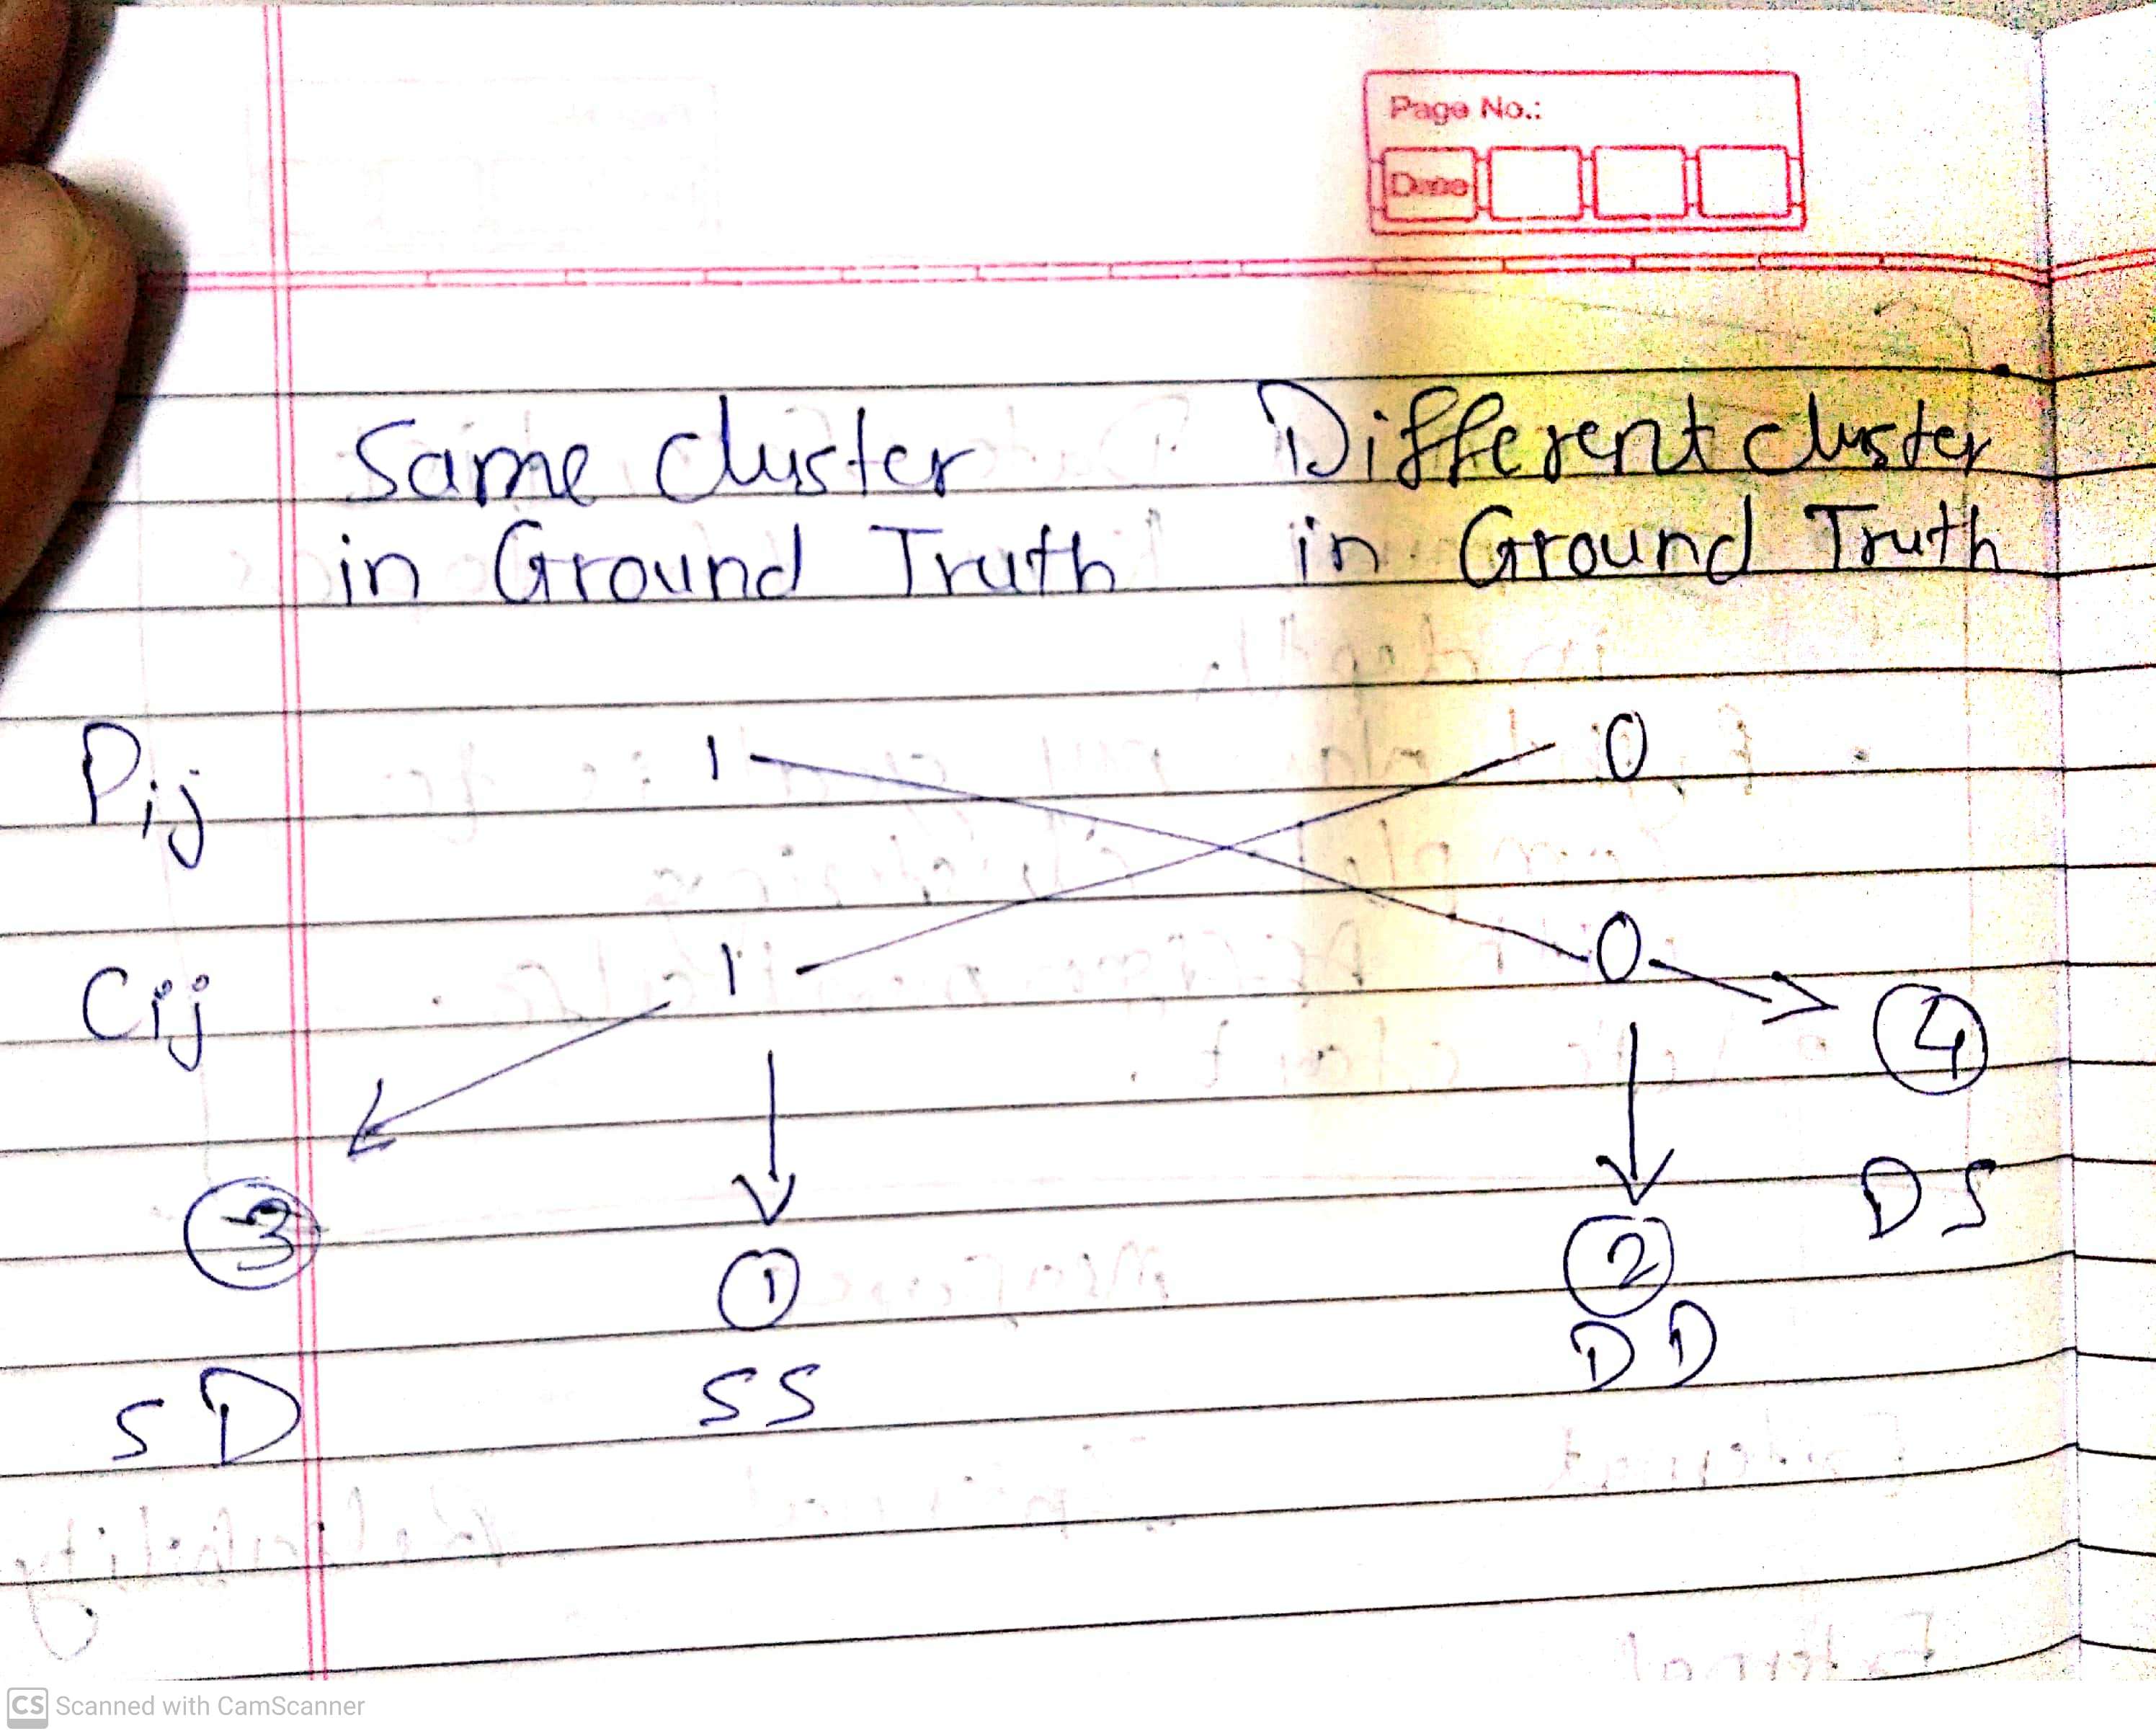 Page No.:
Date
Same cluster
in Ground Truth
Different cluster
in Ground Truth
Pij 1 0
Cij 1 0
4
DS
3
1
2
SD
SS
DD
CS Scanned with CamScanner